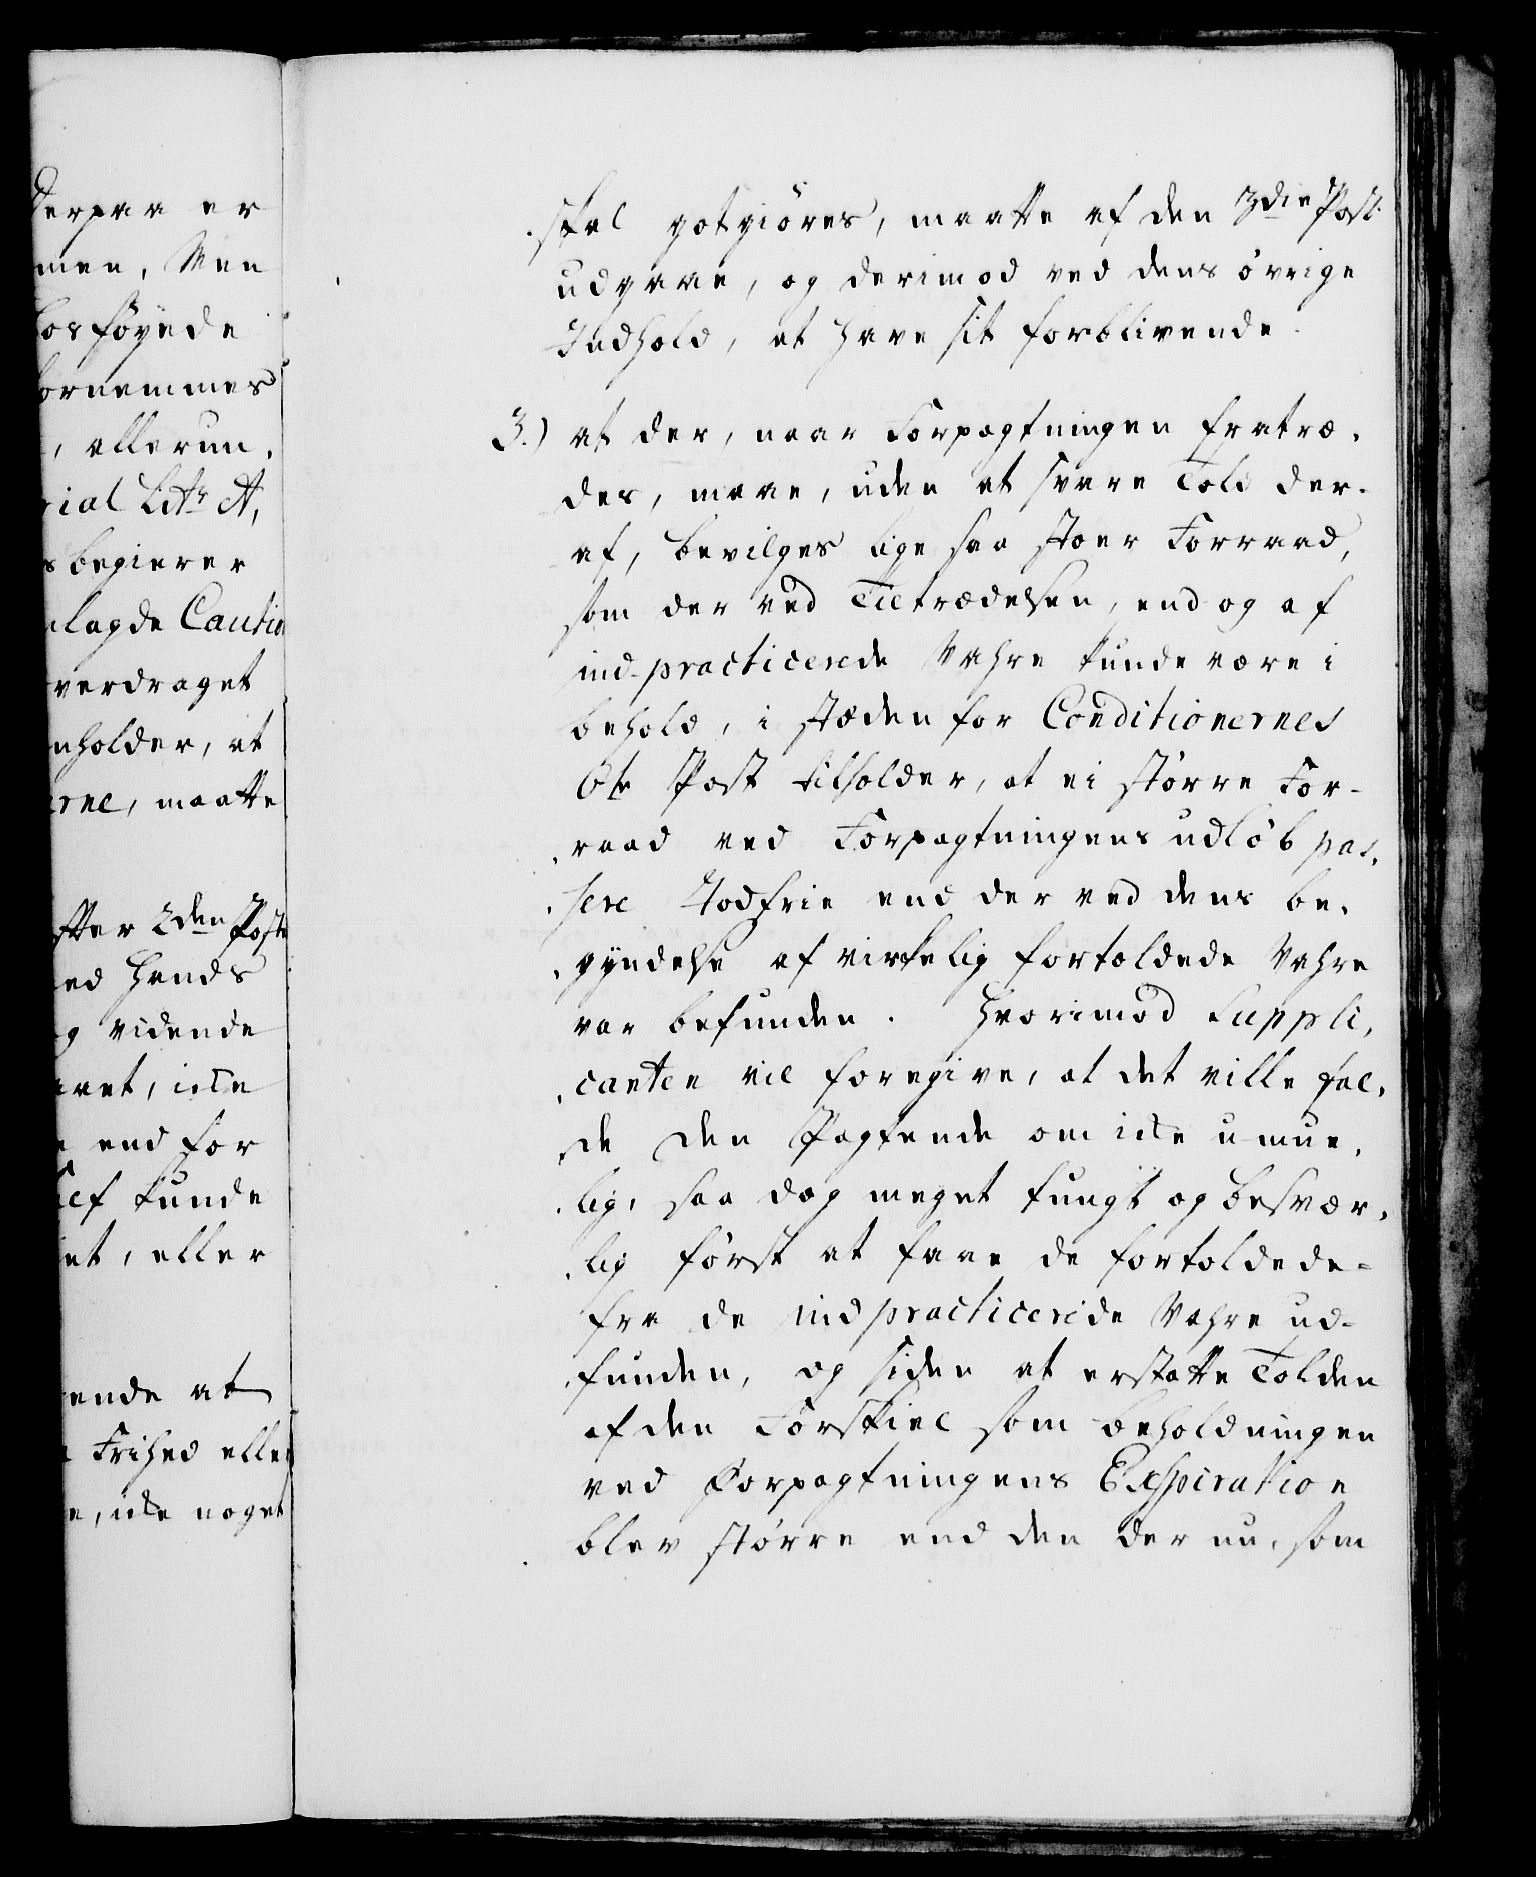 derpaa er
men, Men
losføyede
fornemmes
, allerun,
rial Litr A,
s begierer
lagde Cautio
verdraget
nholder, at
erne, maatte
fter 2den Post
ed Hands
g vidende
aret, icke
e end for
lef kunde
et, eller
ende at
Frihed eller
e, icke noget
skal gotgiøres, maatte af den 3die Post
udgaae, og derimod ved dens øvrige
Indhold, at have sit forblivende.
3.) at der, naar Forpagtningen fratræ,
des, maae, uden at svare Told der-
af, bevilges lige saa stoer Forraad,
som der ved Tiltrædelsen, endog af
ind-practicerede Vahre kunde være i
behold, i stæden for Conditionernes
6te Post tilholder, at ei større For-
raad ved Forpagtningens udløb pas,
sere Todfrie end der ved dens be,
gyndelse af virkelig fortoldede Vahre
var befunden. Hvorimod Suppli,
canten vil foregive, at det ville fal,
de den Pagtende om icke umue,
lig, saa dog meget tungt og besvær,
lig først at faae de fortoldede-
fra de indpracticerede Vahre ud-
funden, og siden at erstatte Tolden
af den Forskiel som beholdningen
ved Forpagtningens Exspiration
blev større end den der nu, som